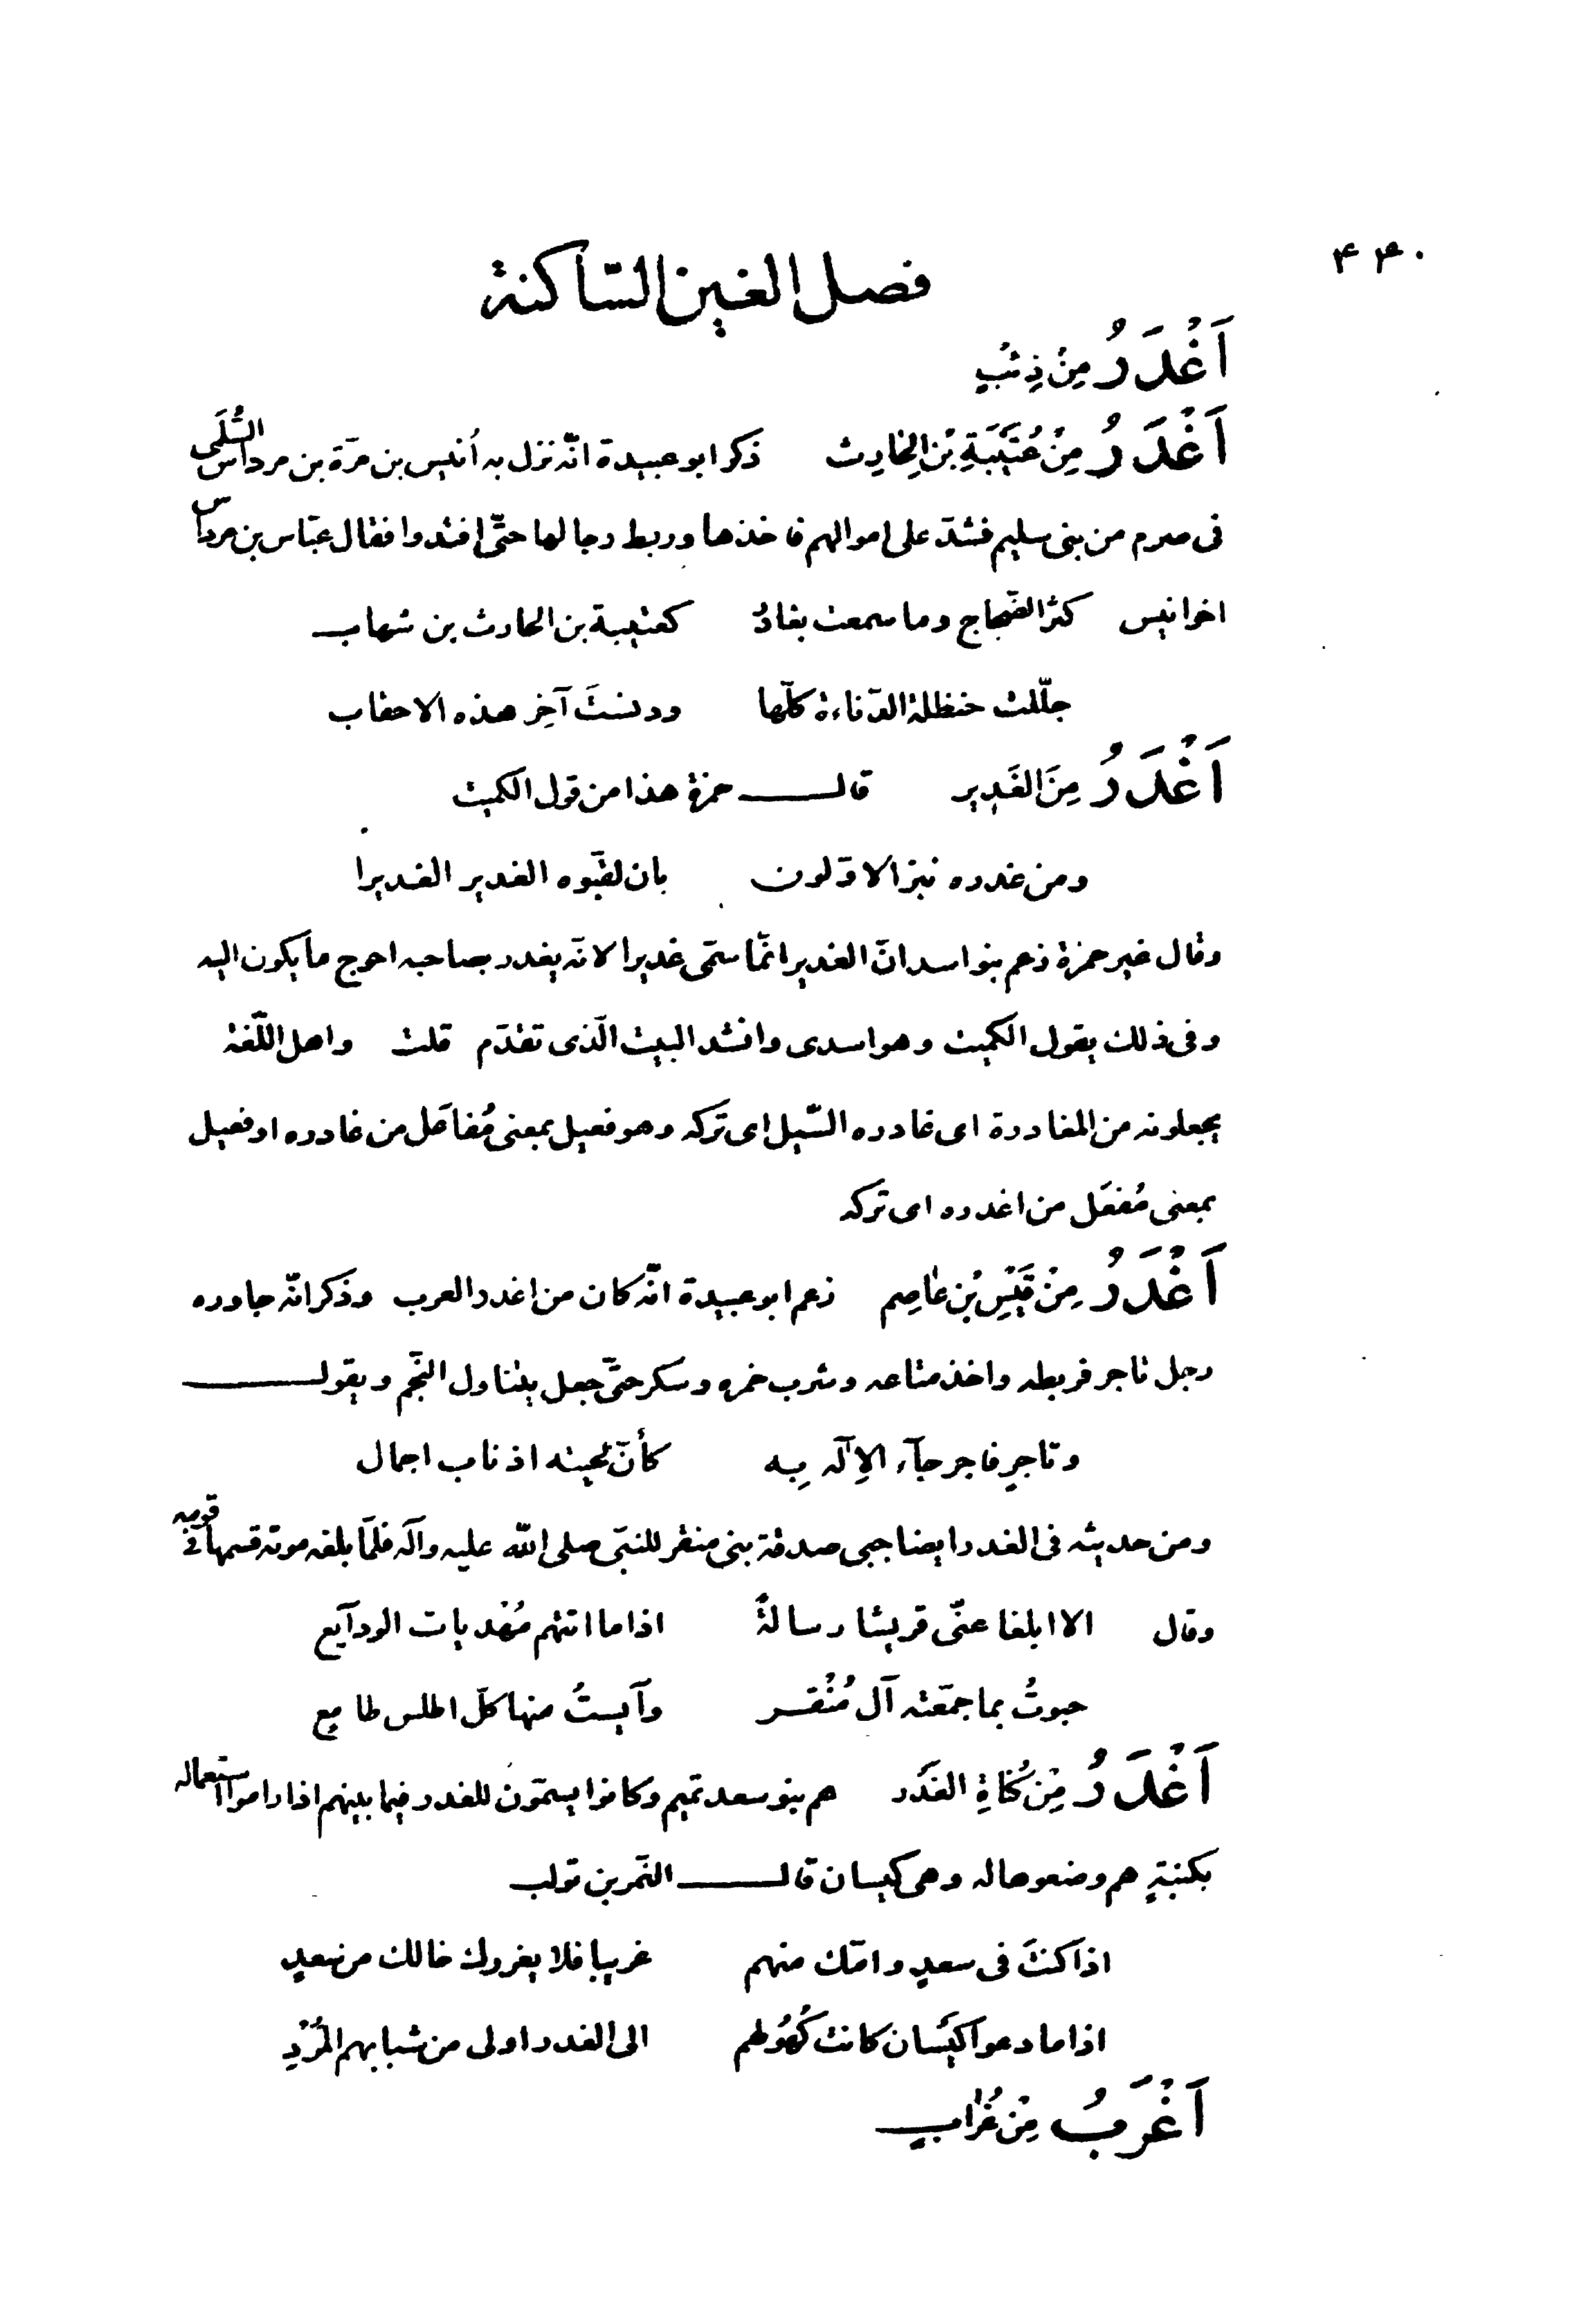 ۴۴۰
فصل الغین السّاکنة
اَغْدَرُ مِنْ ذِئبٍ
اَغْدَرُ مِنْ عُتَیْبَةِ بْنِ الحٰارِث ذکر ابو عبیدة انّه نزل به اُنیس بن مرّة بن مرداس السُّلَمی
فی صرم من بنی سلیم فشدّ علی اموالهم فاخذها وربط رجالها حتّی افتدوا فقال عبّاس بن مرداس
اخو انیس کثر الضّجاج وما سمعت بغادُ کعتیبة بن الحارث بن شهاب
جلّلت حنظلة الدّناءة کلّها ودنستَ آخِر هذه الاحقاب
اَغْدَرُ مِنَ الغَدِیر قال حمزة هذا من قول الکمیت
ومن غدره نبز الاوّلون بان لقّبوه الغدیر الغدیرا
وقال غیر حمزة زعم بنو اسد انّ الغدیر انّما سمّی غدیرا لانّه یغدر بصاحبه احوج ما یکون الیه
وفی ذلک یقول الکمیت وهو اسدی وانشد البیت الّذی تقدّم قلت واهل اللّغة
یجعلونه من المغادرة ای غادره السّیل ای ترکه وهو فعیل بمعنی مُفاعَل من غادره او فعیل
بمعنی مُفعَل من اغدره ای ترکه
اَغْدَرُ مِنْ قَیْسِ بْنِ عٰاصِم زعم ابو عبیدة انّه کان من اغدر العرب وذکر انّه جاوره
رجل تاجر فربطه واخذ متاعه وشرب خمره وسکر حتّی جعل یتناول النّجم ویقول
وتاجرٍ فاجر جآء الاِلٓه بِه کأنّ لحیته اذناب اجمال
ومن حدیثه فی الغدر ایضا جبی صدقة بنی منقر للنبّی صلی اللّه علیه وآله فلمّا بلغه موته قسمها فی قومه
وقال الا ابلغا عنّی قریشا رسالةً اذا ما اتتهم مُهْدیات الودآیع
حبوتُ بما جمّعته آل مُنْقر وآیستُ منها کلّ اطلس طامع
اَغْدَرُ مِنْ کُنٰاةِ الغَدْر هم بنو سعد تمیم وکانوا یسمّون للغدر فیما بینهم اذا راموا استعماله
بکنیةٍ هم وضعوها له وهی کیسان قال النّمر بن تولب
اذا کنتَ فی سعدٍ وامّک منهم غریبا فلا یغررک خالک من سعدٍ
اذا ما دعوا کَیْسان کانت کُهُولهم الی الغدر اولی من شبابهم المُرْدِ
اَغْرَبُ مِنْ غُرٰابٍ